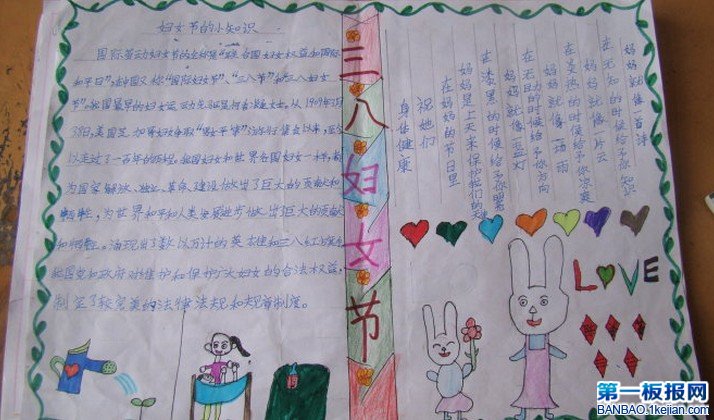 妇女节的小知识
国际劳动妇女节的全称是"联合国妇女权益和国际
和平日",在中国又称"国际妇女节"、"三八节"和三八妇女
节"。我国最早的妇女运动先驱是何香凝女士。从1909年3月
8日,美国芝加哥妇女争取"男女平等"
以来走过了一百年的历程。我国妇女和世界各国妇女一样,都
为国家解放、独立、革命、建设做出了巨大的贡献和
牺牲,为世界和平和人类发展进步做出了巨大的贡献
和牺牲。涌现出了数以万计的英雄和三八红旗手
我国党和政府对维护和保护广大妇女的合法权益,
制定了较完美的法律法规和规章制度。
三八妇女节
妈妈就像首诗
在无知的时候给予你知识
妈妈就像一片云
在炎热的时候给予你凉爽
妈妈就像一场雨
在无助的时候给予你方向
妈妈就像一盏灯
在漆黑的时候给予你照明
妈妈是上天来保护我们的天使
在妈妈的节日里
祝她们
身体健康
LOVE
第一板报网
BANBAO.1kejian.com